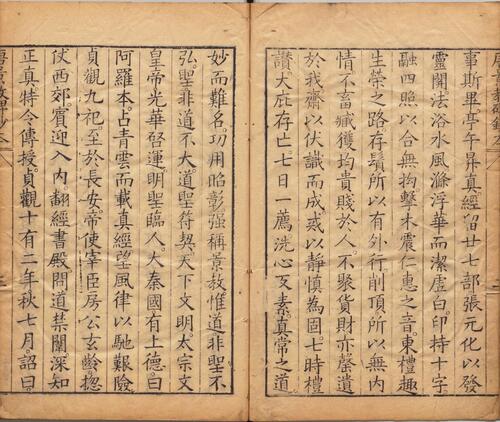 事斯畢亭午昇真經留廿七部張元化以發
靈關法浴水風滌浮華而潔虛白印持十字
融四照以合無拘擊木震仁惠之音東禮趣
生榮之路存鬚所以有外行削頂所以無內
情不畜臧獲均貴賤於人不聚貨財示罄遺
於我齋以伏識而成戒以靜慎為固七時禮
讚大庇存亡七日一薦洗心反素真常之道
妙而難名功用昭彰強稱景教惟道非聖不
弘聖非道不大道聖符契天下文明太宗文
皇帝光華啓運明聖臨人大秦國有上德曰
阿羅本占青雲而載真經望風律以馳艱險
貞觀九祀至於長安帝使宰臣房公玄齡揔
仗西郊賓迎入內翻經書殿問道禁闈深知
正真特令傳授貞觀十有二年秋七月詔曰